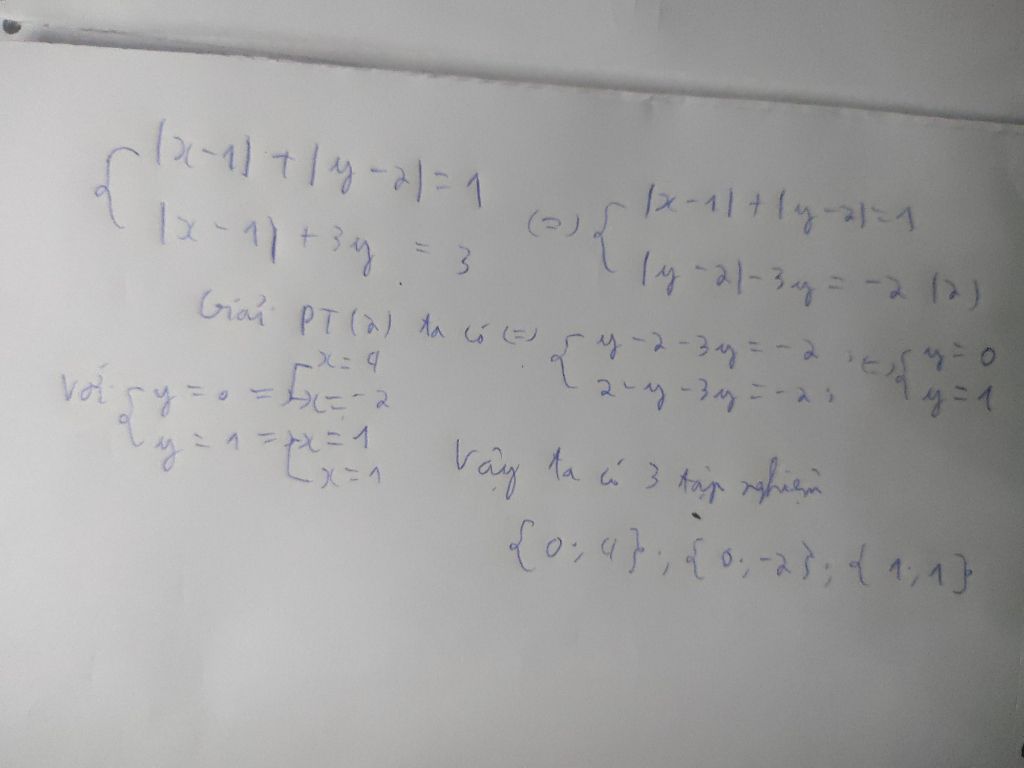 { |x-1| + |y-2| = 1
|x-1| + 3y = 3
(=) { |x-1| + |y-2| = 1
|y-2| - 3y = -2 (2)
Giải PT(2) ta có (=) { y-2-3y = -2 ; (=) { y = 0
2-y-3y = -2 ; y = 1
Với { y = 0 = [ x = 4
x = -2
y = 1 = [ x = 1
x = 1
Vậy ta có 3 tập nghiệm
{0; 4}; {0; -2}; {1; 1}